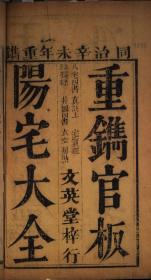 同治辛未年重鐫
重鐫官板
文英堂梓行
陽宅大全